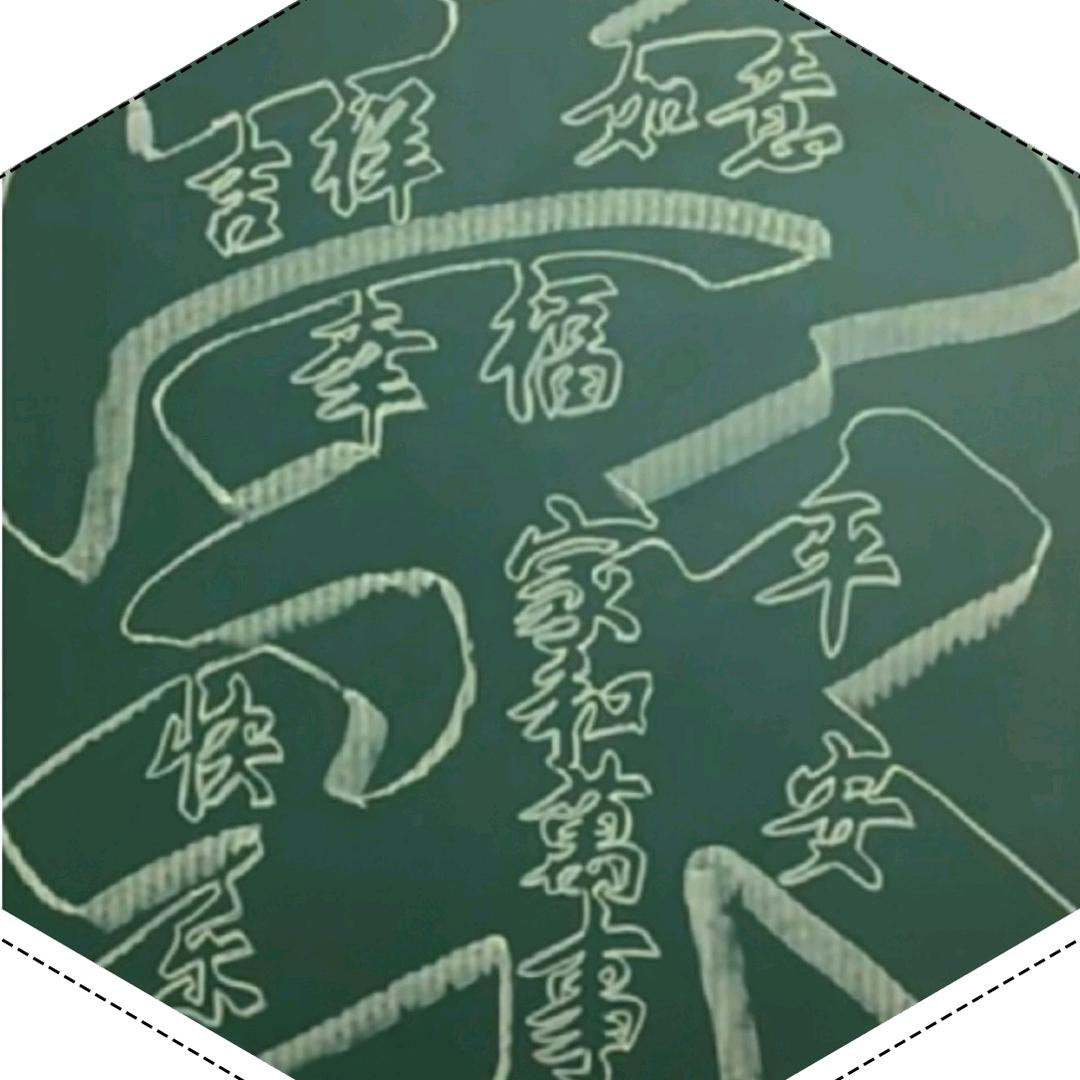 吉祥
如意
幸福
平安
家和萬事
快乐